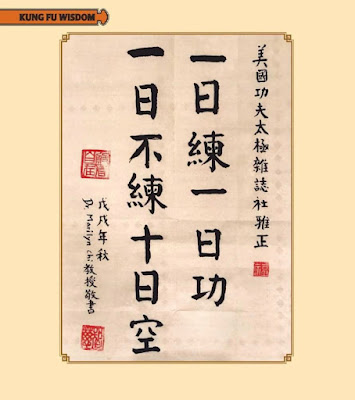 KUNG FU WISDOM
美國功夫太極雜誌社雅正
一日練一日功
一日不練十日空
戊戌年秋
Dr. Marilyn Chi 教授敬書